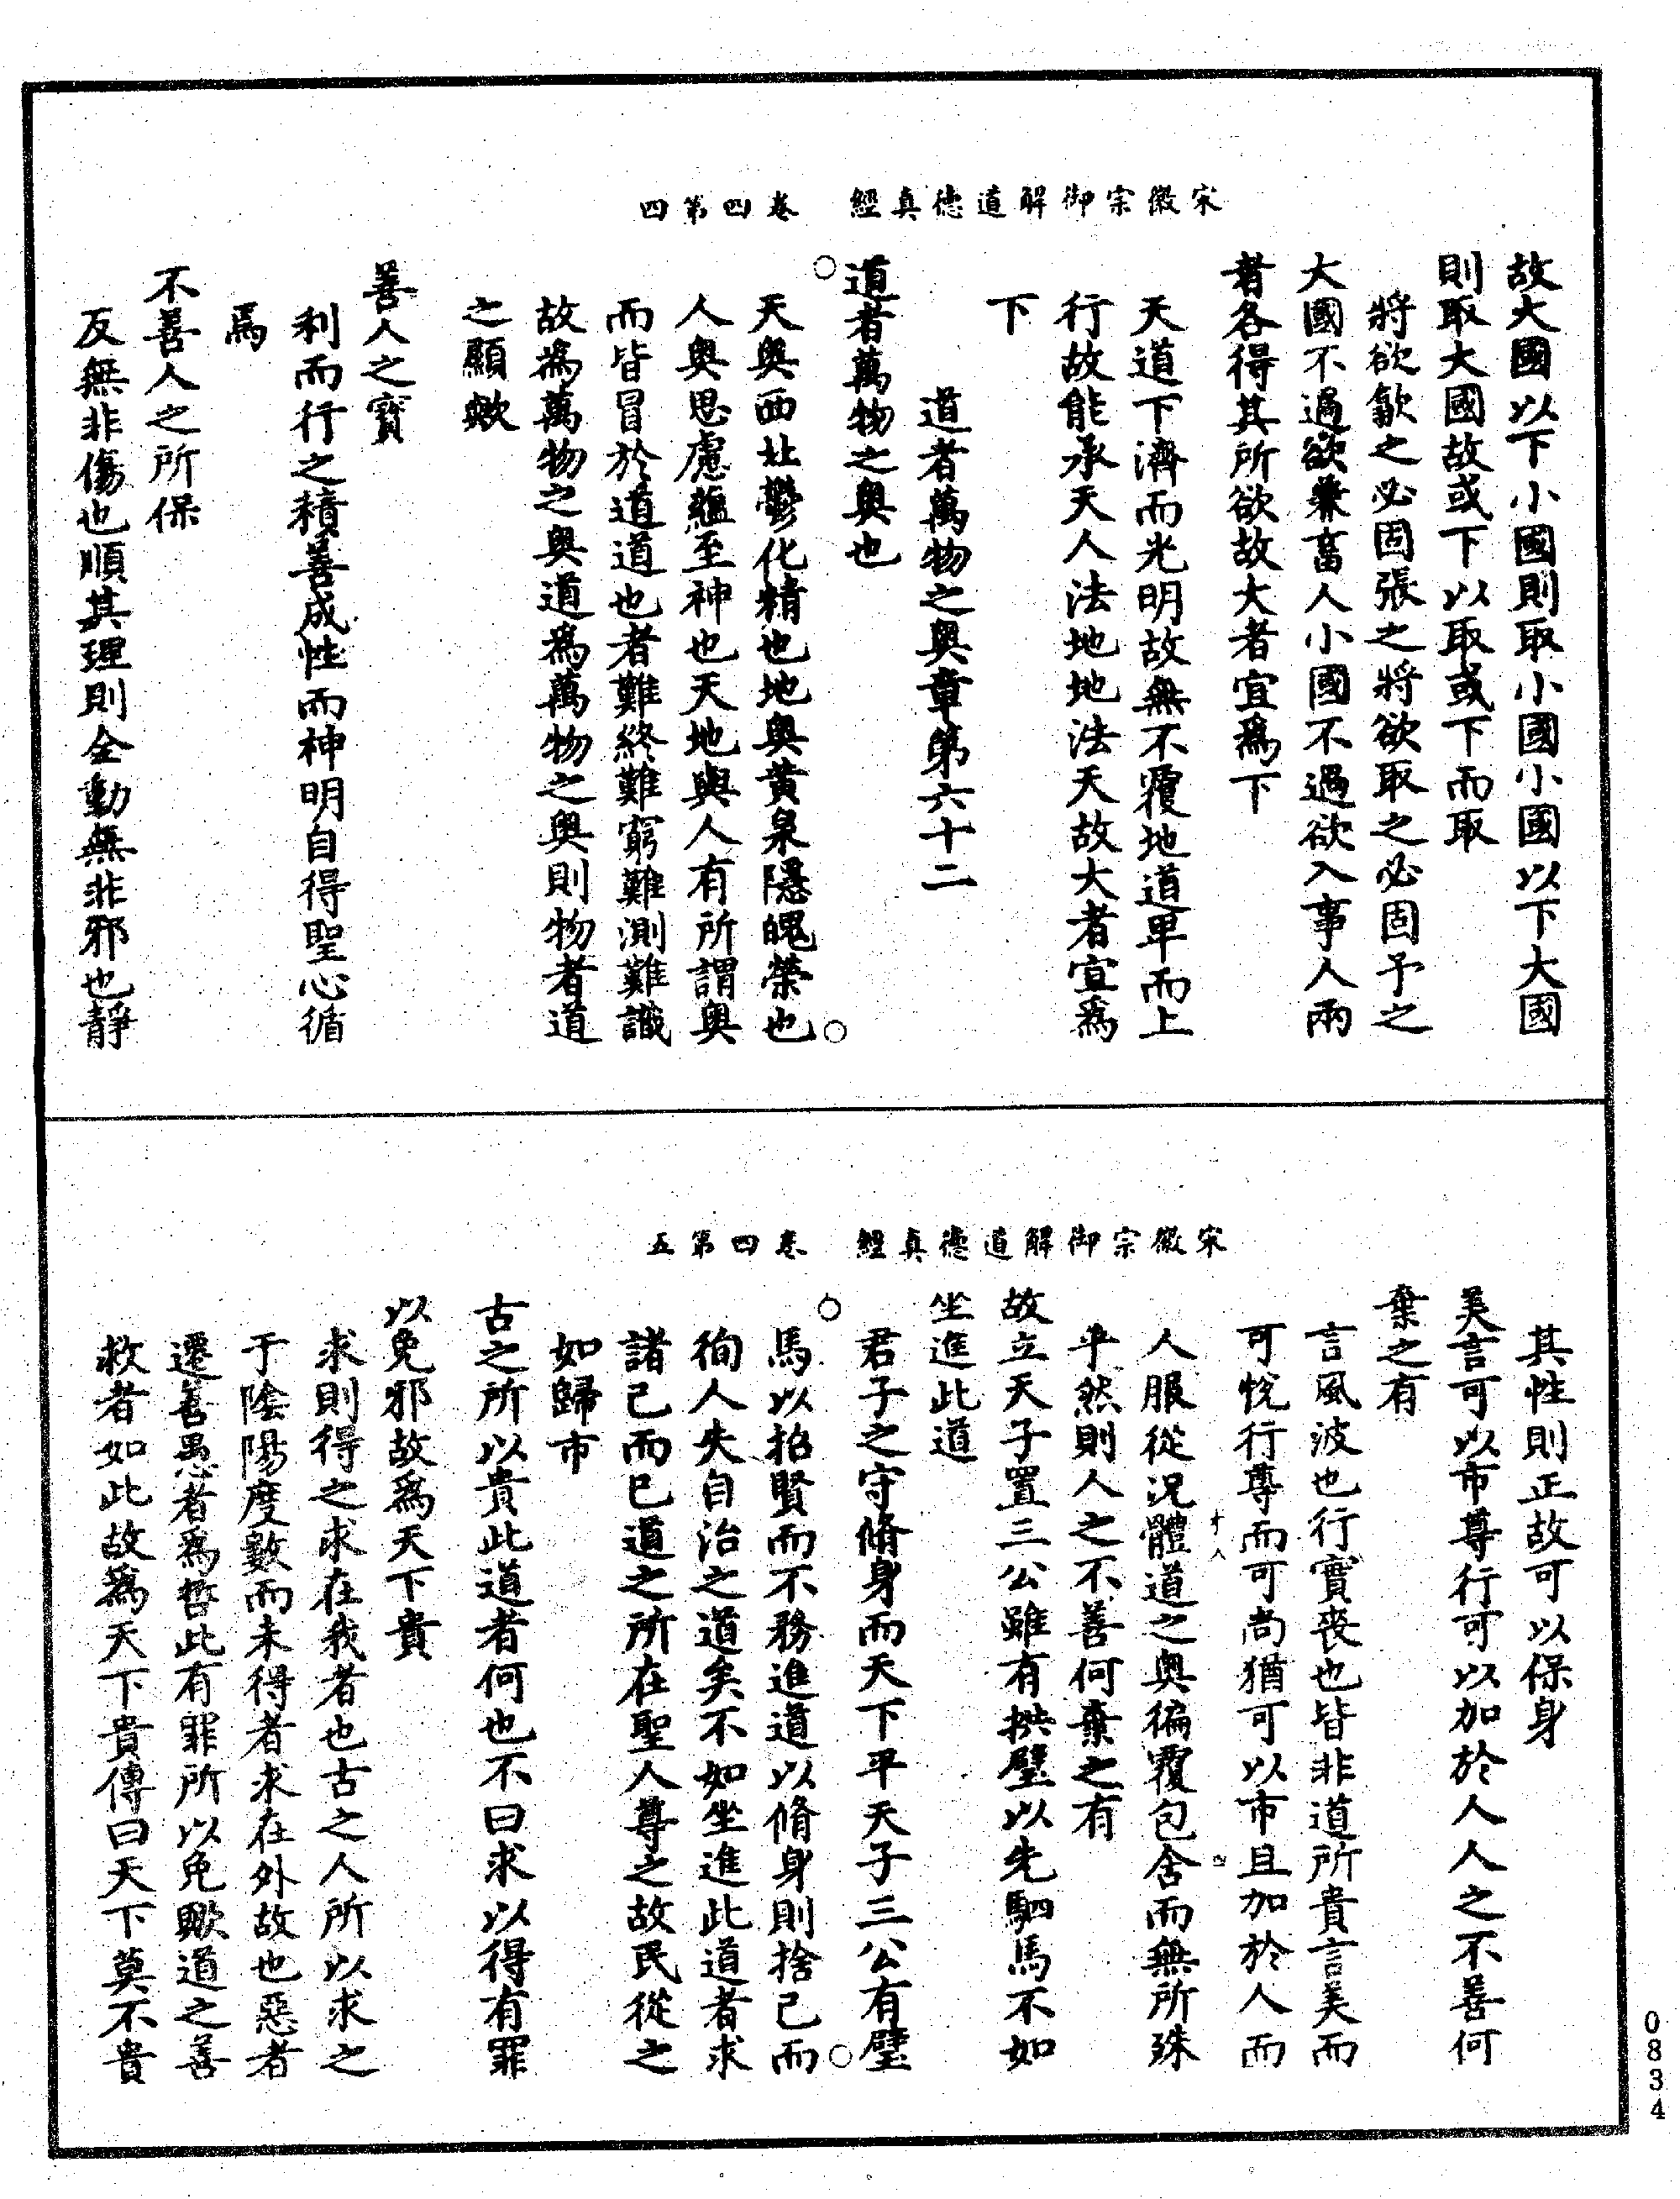 宋徽宗御解道德真經　卷四第四
故大國以下小國則取小國小國以下大國
則取大國故或下以取或下而取
將欲歙之必固張之將欲取之必固予之
大國不過欲兼畜人小國不過欲入事人兩
者各得其所欲故大者宜爲下
天道下濟而光明故無不覆地道卑而上
行故能承天人法地地法天故大者宜爲
下
道者萬物之奧章第六十二
道者萬物之奧也
天奧西北鬱化精也地奧黃泉隱魄榮也
人奧思慮蘊至神也天地與人有所謂奧
而皆冒於道道也者難終難窮難測難識
故爲萬物之奧道爲萬物之奧則物者道
之顯歟
善人之寶
利而行之積善成性而神明自得聖心循
焉
不善人之所保
反無非傷也順其理則全動無非邪也靜
宋徽宗御解道德真經　卷四第五
其性則正故可以保身
美言可以市尊行可以加於人人之不善何
棄之有
言風波也行實喪也皆非道所貴言美而
可悅行尊而可尚猶可以市且加於人而
十八　四
人服從況體道之奧徧覆包含而無所殊
乎然則人之不善何棄之有
故立天子置三公雖有拱璧以先駟馬不如
坐進此道
君子之守脩身而天下平天子三公有璧
馬以招賢而不務進道以脩身則捨己而
徇人失自治之道矣不如坐進此道者求
諸己而已道之所在聖人尊之故民從之
如歸市
古之所以貴此道者何也不曰求以得有罪
以免邪故爲天下貴
求則得之求在我者也古之人所以求之
于陰陽度數而未得者求在外故也惡者
遷善愚者爲哲此有罪所以免歟道之善
救者如此故爲天下貴傳曰天下莫不貴
0834